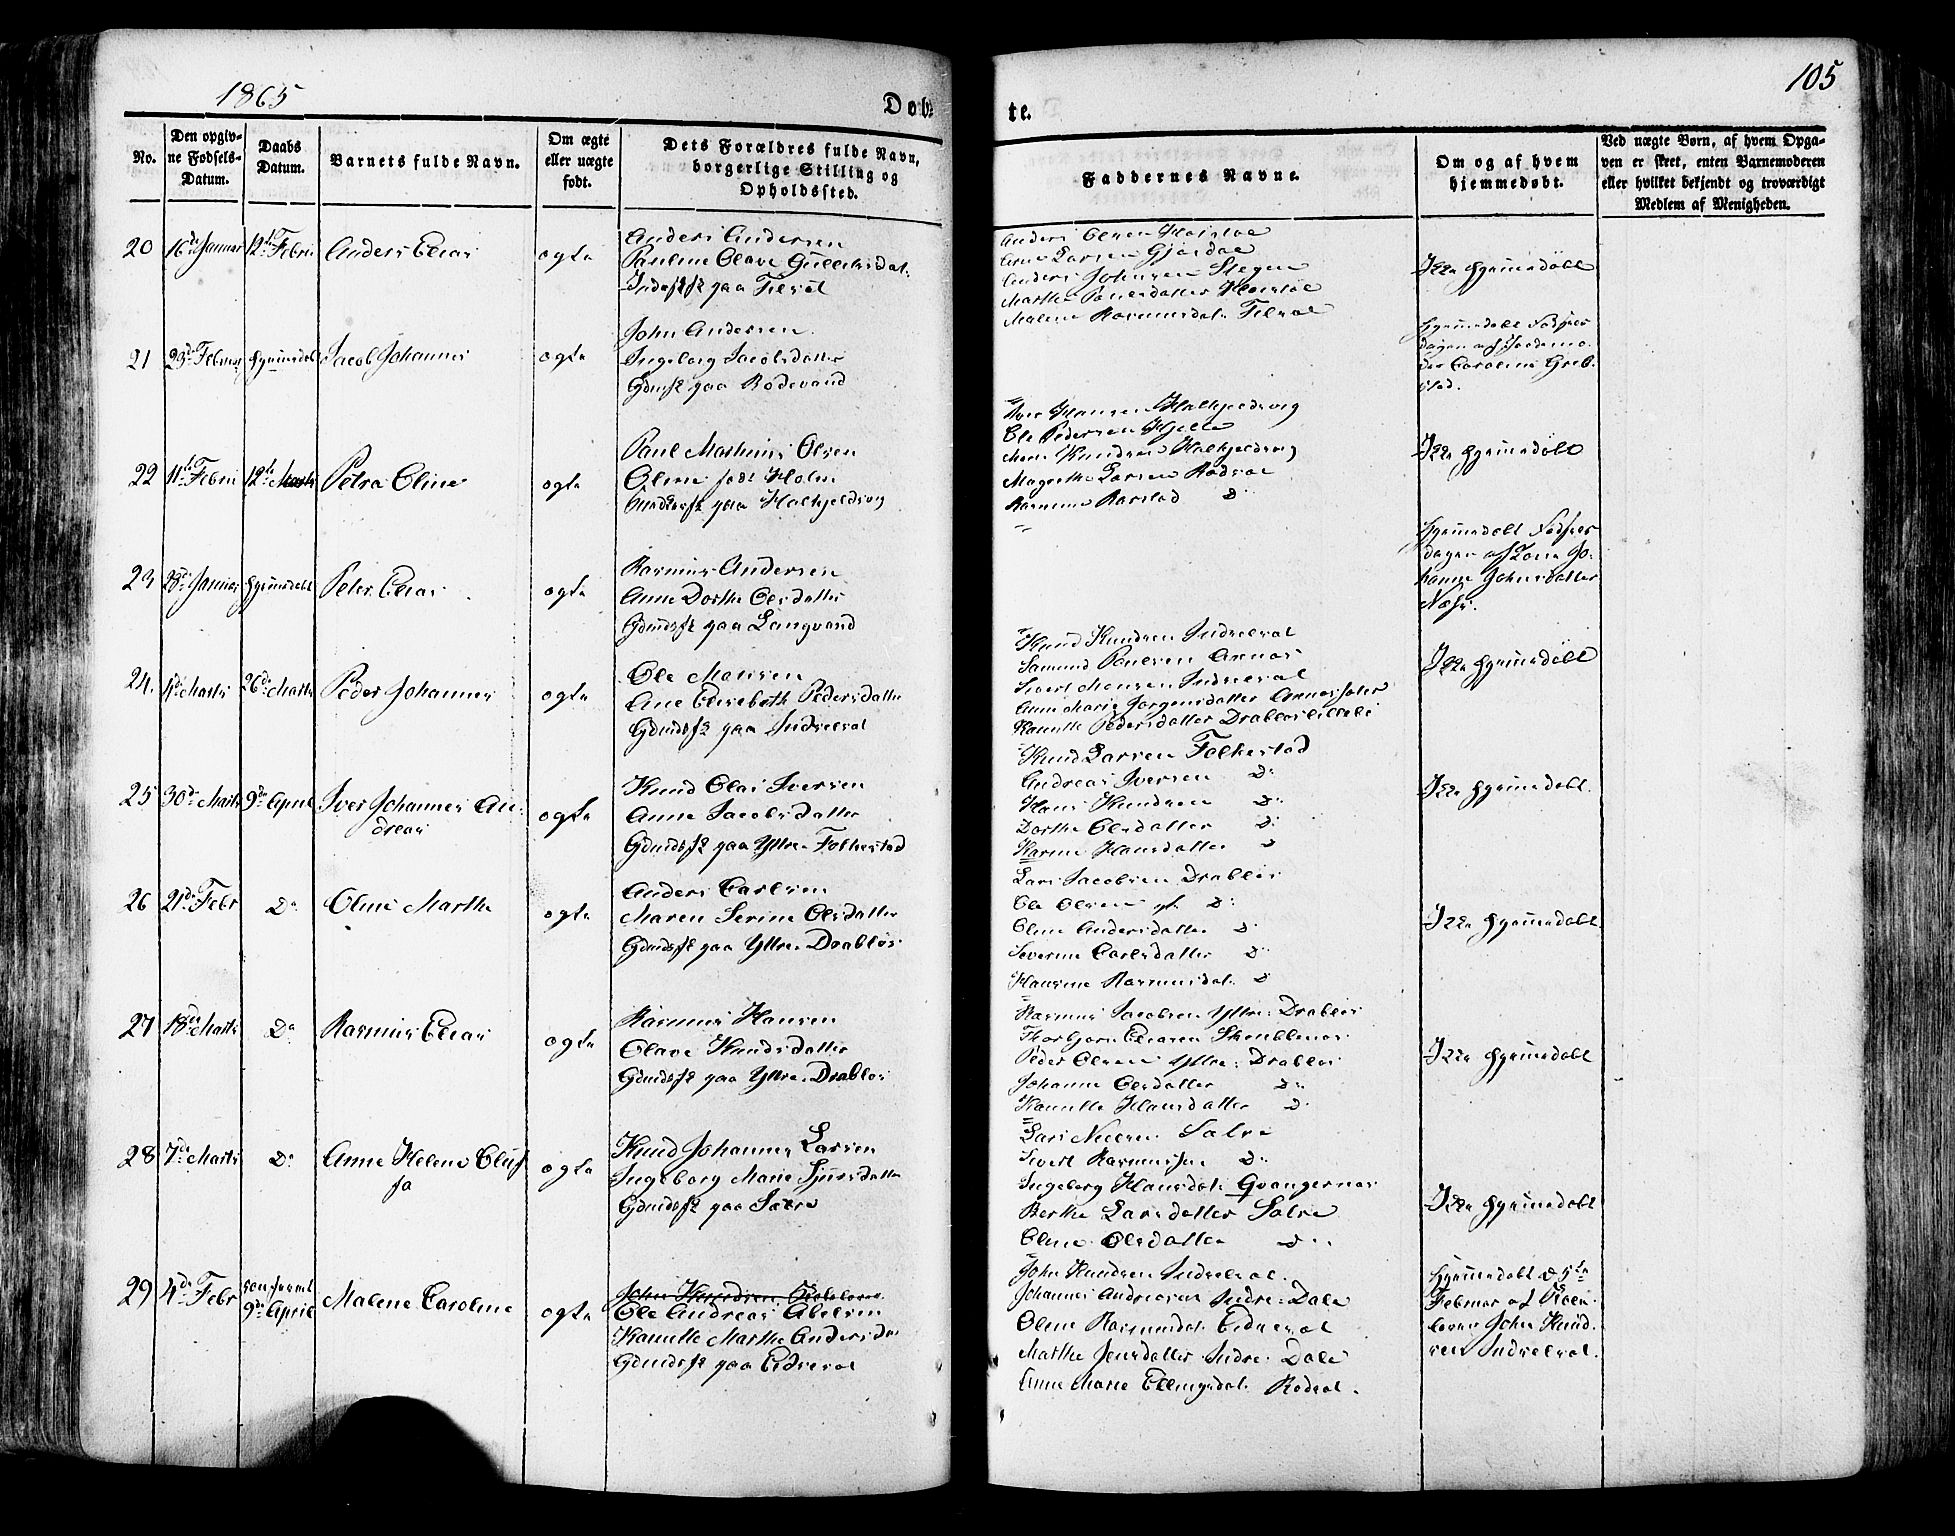 1865
Døb-
te.
105
No.
Den opgiv-
ne Fødsels-
Datum.
Daabs
Datum.
Barnets fulde Navn.
Om ægte
eller uægte
født.
Dets Forældres fulde Navn,
borgerlige Stilling og
Opholdssted.
Faddernes Navne.
Om og af hvem
hjemmedøbt.
Ved uægte Børn, af hvem Opga-
ven er skeet, enten Barnemoderen
eller hvilket bekjendt og troværdigt
Medlem af Menigheden.
20
16de Januar
12te Febri
Anders Elias
ægte
Anders Andersen
Pauline Olave Gulleksdat:
Inds: paa
Anders Olsen
Larsen Gjørdal
Anders Johnsen Stegen
Marthe
Malene Rasmusdat:
Ikke hjemmedøbt
21
23de Februar
hjemmedøbt
Jacob Johannes
ægte
John Andersen
Ingeborg Jacobsdatter
Gdmds: paa Rødevand
hjemmedøbt Fødsels
dagen af Jordemo-
der Caroline Greb-
stad.
22
11te Febri
12te Marts
Petra Oline
ægte
Paul Mathias Olsen
Oline født Holm
paa Halkjeldsvig
Iver Hansen Halkjeldsvig
Ole Pedersen Hjelle
Knudsen Halkjeldsvig
Magrethe Larsen
Rasmine Rasstad Do
Ikke hjemmedøbt
23
28de Januar
hjemmedøbt
Peter Elias
ægte
Rasmus Andersen
Anne Dorthe Olsdatter
Gdmds: paa Langvand
hjemmedøbt Fødsels
dagen af Jo-
hanne Johnsdatter
Næss.
24.
4de Marts
26de Marts
Peder Johannes
ægte
Ole Monsen
Ane Elisabeth Pedersdatter
Gdmds: paa Indreeral
Knud Knudsen Indreeral
Samund Paulsen Aurnos
Sivert Monsen Indreeral
Anne Marie Jørgensdatter
Kanutte Pedersdatter
Ikke hjemmedøbt
25
30de Marts
9de April
Iver Johannes An-
dreas
ægte
Knud Olai Iversen
Anne Jacobsdatter
Gdmds: paa Yttre Folkestad
Knud Larsen Folkestad
Andreas Iversen Do
Hans Knudsen Do
Dorthe Olsdatter Do
Karine Hansdatter Do
Ikke hjemmedøbt.
26
21de Febr
Do
Oline Marthe
ægte
Anders Carlsen
Maren Serine Olsdatter
Gdmds: paa Yttre Drabløs
Lars Jacobsen Drabløs
Ole Olsen Do
Oline Andersdatter Do
Severine Carlsdatter Do
Hansine Rasmusdat. Do
Ikke hjemmedøbt
27
18de Marts
Do
Rasmus Elias
ægte
Rasmus Hansen
Olave Knudsdatter
Gdmds: paa Yttre Drabløs
Rasmus Jacobsen Yttre Drabløs
Thorbjørn Eliasen
Peder Olsen Yttre Drabløs
Johanne Olsdatter Do
Kanutte Hansdatter Do
Ikke hjemmedøbt
28
7de Marts
Do
Anne Helene Oluf-
fa
ægte
Knud Johannes Larsen
Ingeborg Marie Sjursdatter
Gdmds: paa Satre
Lars Satre
Sivert Rasmussen Do
Ingeborg Hansdat: Gvangernes
Berthe Larsdatter Satre
Oline Olsdatter Do
Ikke hjemmedøbt
29
4de Febr
9de April
Malene Caroline
ægte
John Knudsen
Ole Andreas Abelsen
Kanutte Marthe Andersda
Gdmds: paa
John Knudsen Indreeral.
Johannes Andreasen Indre Dale
Oline Rasmusdat.
Marthe Jensdatter Indre Dale
Anne Marie Ellingsdat.
hjemmedøbt d 5te
Februar af
John Knud-
sen Indreeral.